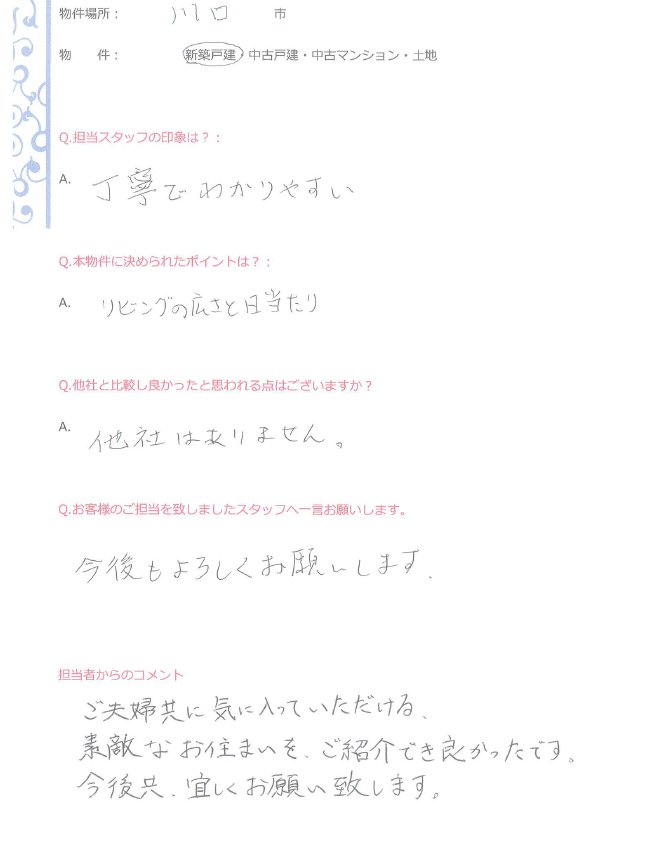 物件場所： 川口 市
物　件： 新築戸建・中古戸建・中古マンション・土地
Q.担当スタッフの印象は？：
A. 丁寧でわかりやすい
Q.本物件に決められたポイントは？：
A. リビングの広さと日当たり
Q.他社と比較し良かったと思われる点はございますか？
A. 他社はありません。
Q.お客様のご担当を致しましたスタッフへ一言お願いします。
今後もよろしくお願いします.
担当者からのコメント
ご夫婦共に気に入っていただける、
素敵なお住まいを、ご紹介でき良かったです。
今後共、宜しくお願い致します。